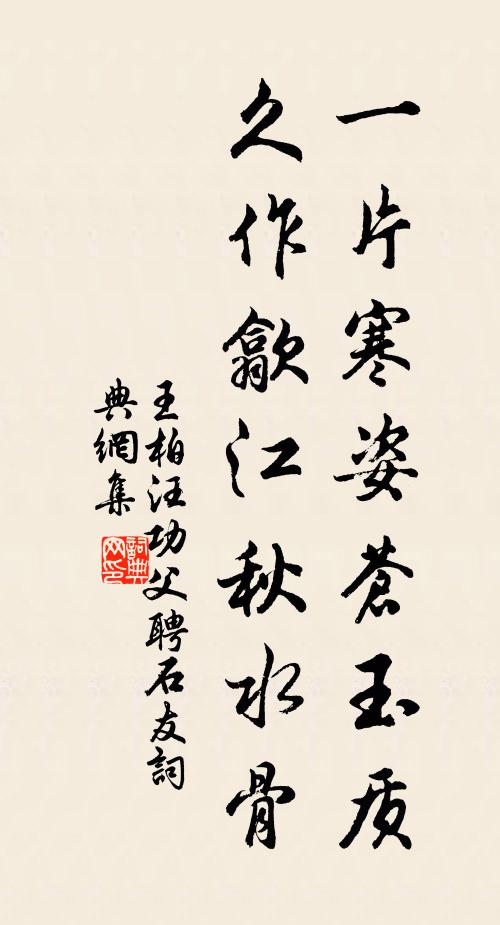 一片寒姿蒼玉质
久作歙江秋水骨
王柏汪功父聘石友詞
典網集
詞典网印